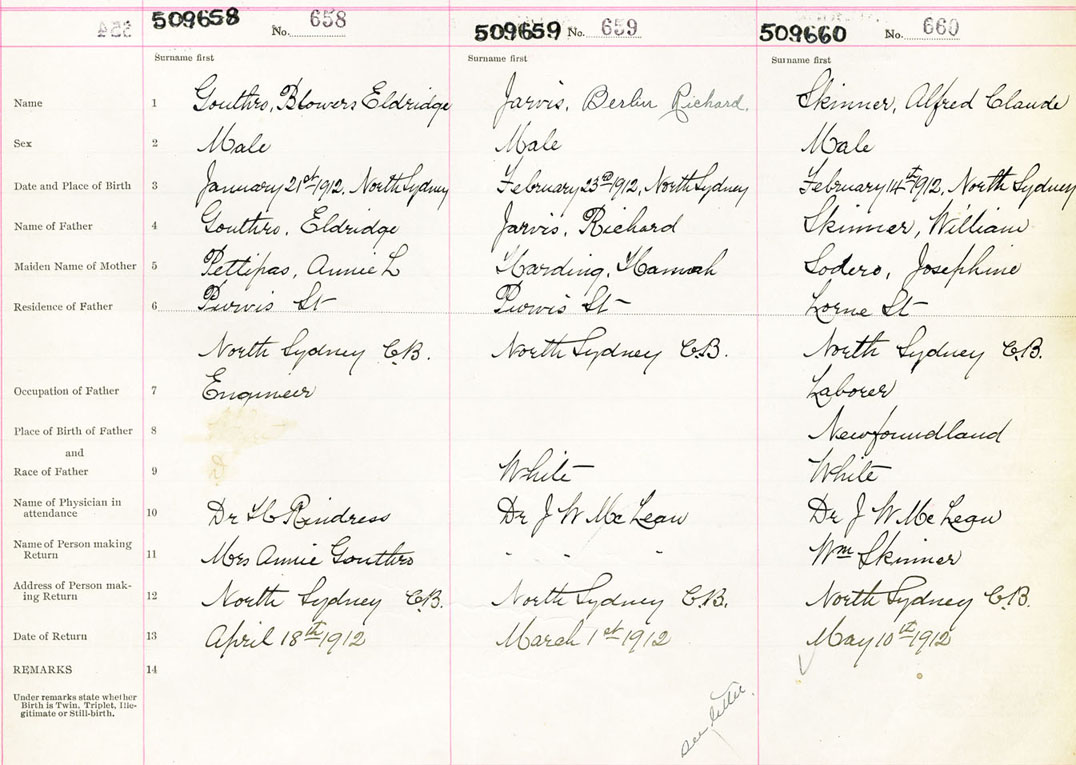 509658 No. 658 509659 No. 659 509660 No. 660
Surname first Surname first Surname first
Name 1 Gouthro, Blowers Eldridge Jarvis, Berlin Richard. Skinner, Alfred Claude
Sex 2 Male Male Male
Date and Place of Birth 3 January 21st 1912, North Sydney February 23rd 1912, North Sydney February 14th 1912, North Sydney
Name of Father 4 Gouthro, Eldridge Jarvis, Richard Skinner, William
Maiden Name of Mother 5 Pettipas, Annie L Harding, Hannah Sodero, Josephine
Residence of Father 6 Purvis St Purvis St Lorne St
North Sydney C.B. North Sydney C.B. North Sydney C.B.
Occupation of Father 7 Engineer Laborer
Place of Birth of Father 8 Newfoundland
and
Race of Father 9 White White
Name of Physician in
attendance 10 Dr Rindress Dr J W McLean Dr J W McLean
Name of Person making
Return 11 Mrs Annie Gouthro " " " Wm Skinner
Address of Person mak-
ing Return 12 North Sydney C.B. North Sydney C.B. North Sydney C.B.
Date of Return 13 April 18th 1912 March 1st 1912 May 10th 1912
REMARKS 14
Under remarks state whether
Birth is Twin, Triplet, Ille-
gitimate or Still-birth.
see letter.